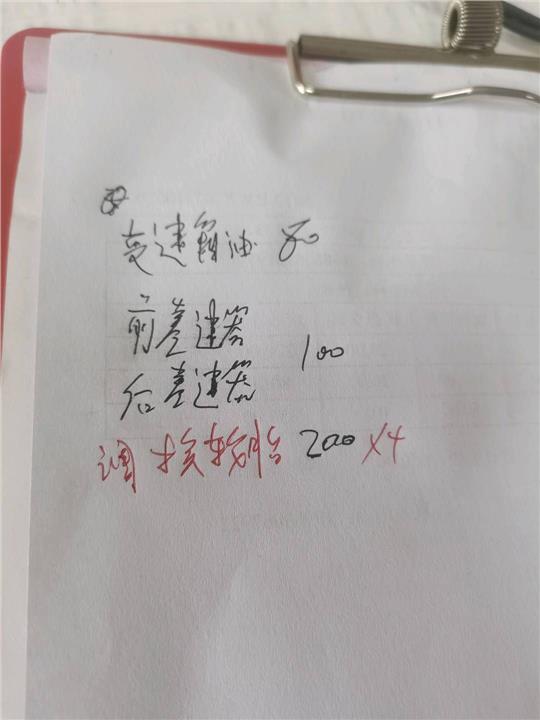 变速箱油 80
前差速器
后差速器 100
调换轮胎 200 X4